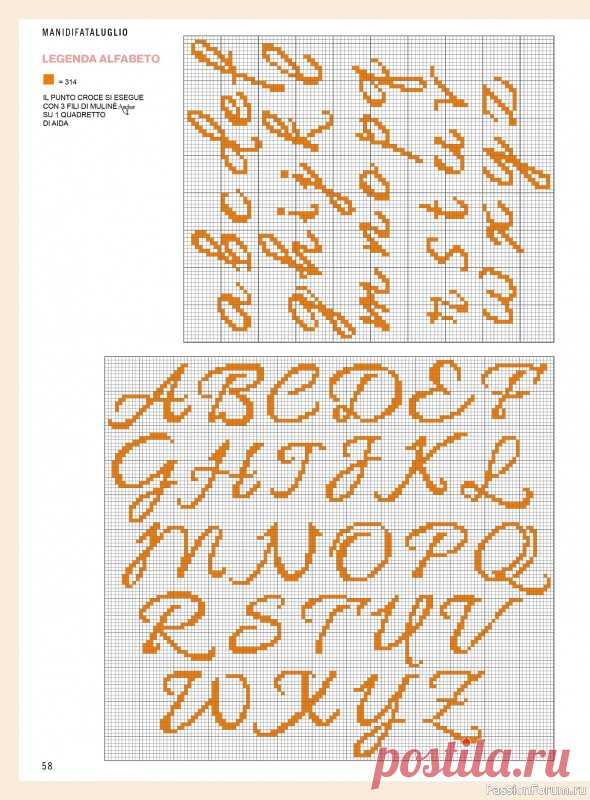 MANIDIFATALUGLIO
LEGENDA ALFABETO
= 314
IL PUNTO CROCE SI ESEGUE
CON 3 FILI DI MULINÉ Anchor
SU 1 QUADRETTO
DI AIDA
a b c d e f
g h i j k l
m n o p q
r s t u v
w x y z
A B C D E F
G H I J K L
M N O P Q
R S T U V
W X Y Z
58
postila.ru
PassionForum.ru